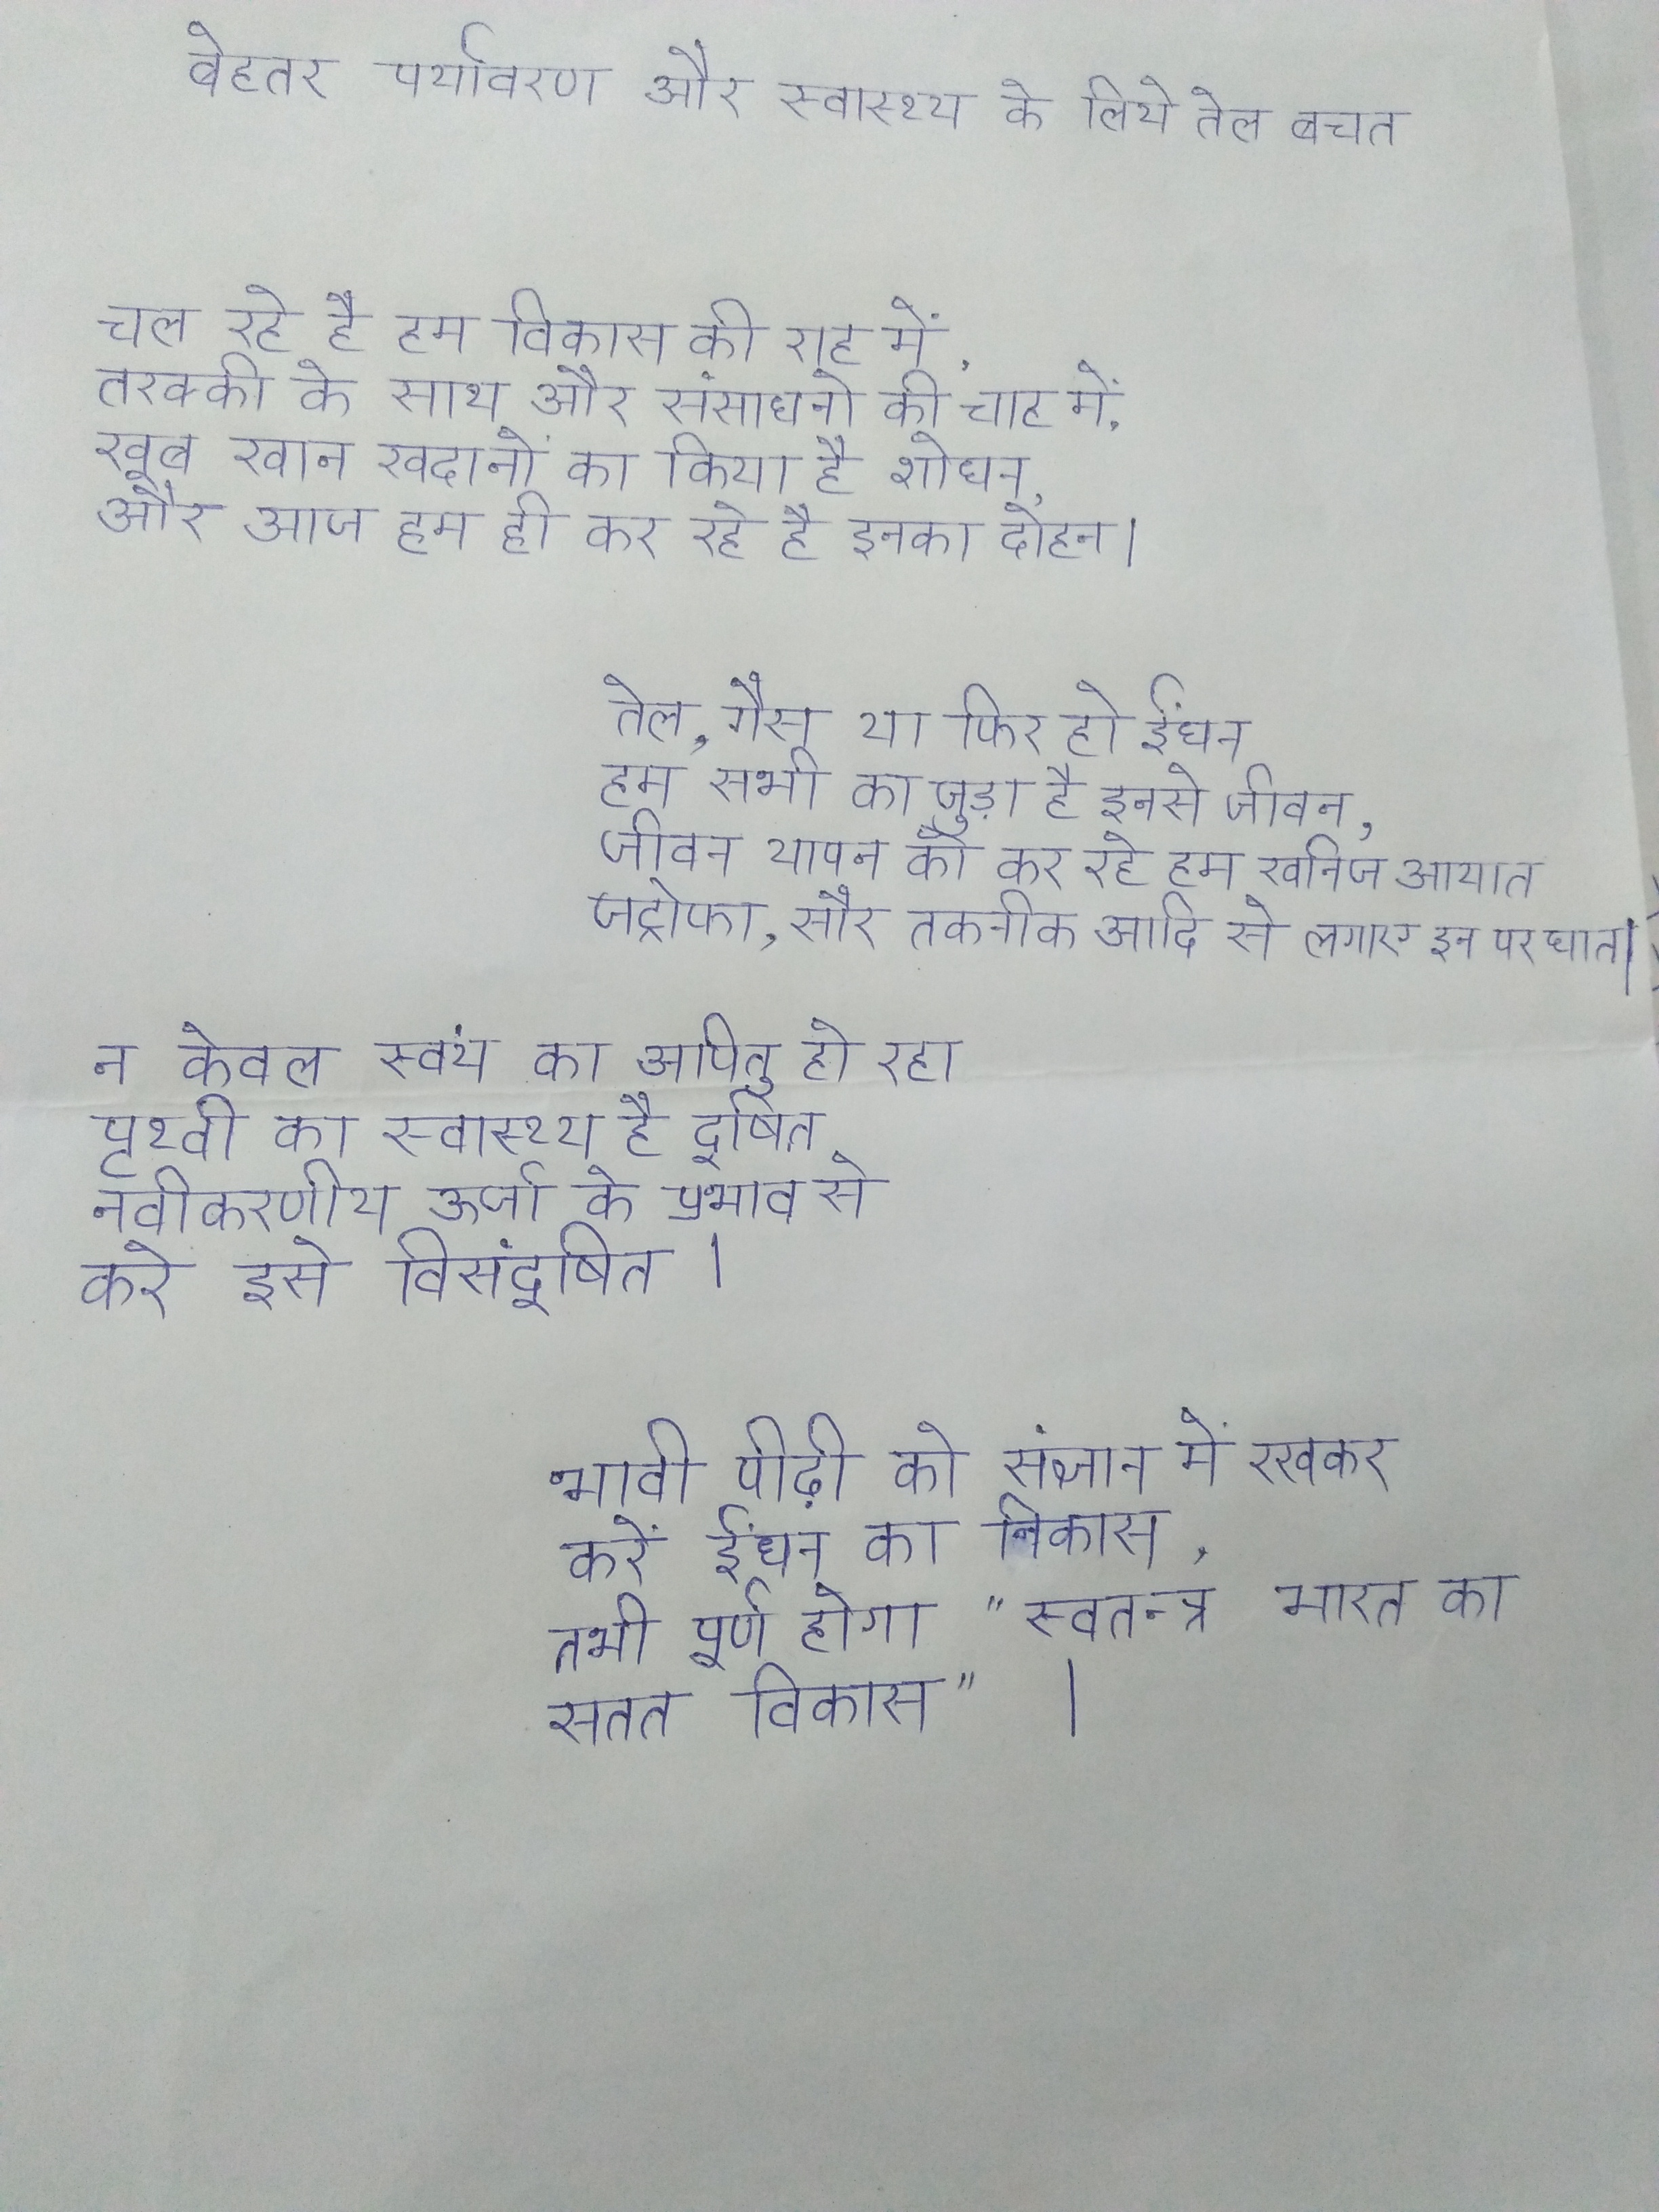 बेहतर पर्यावरण और स्वास्थ्य के लिये तेल बचत
चल रहे है हम विकास की राह में,
तरक्की के साथ और संसाधनो की चाह में,
खूब खान खदानों का किया है शोधन,
और आज हम ही कर रहे है इनका दोहन।
तेल, गैस या फिर हो ईंधन
हम सभी का जुड़ा है इनसे जीवन,
जीवन यापन को कर रहे हम खनिज आयात
जट्रोफा, सौर तकनीक आदि से लगाए इन पर घात।
न केवल स्वयं का अपितु हो रहा
पृथ्वी का स्वास्थ्य है दूषित
नवीकरणीय ऊर्जा के प्रभाव से
करे इसे विसंदूषित ।
भावी पीढ़ी को संज्ञान में रखकर
करें ईंधन का निकास,
तभी पूर्ण होगा "स्वतन्त्र भारत का
सतत विकास" ।